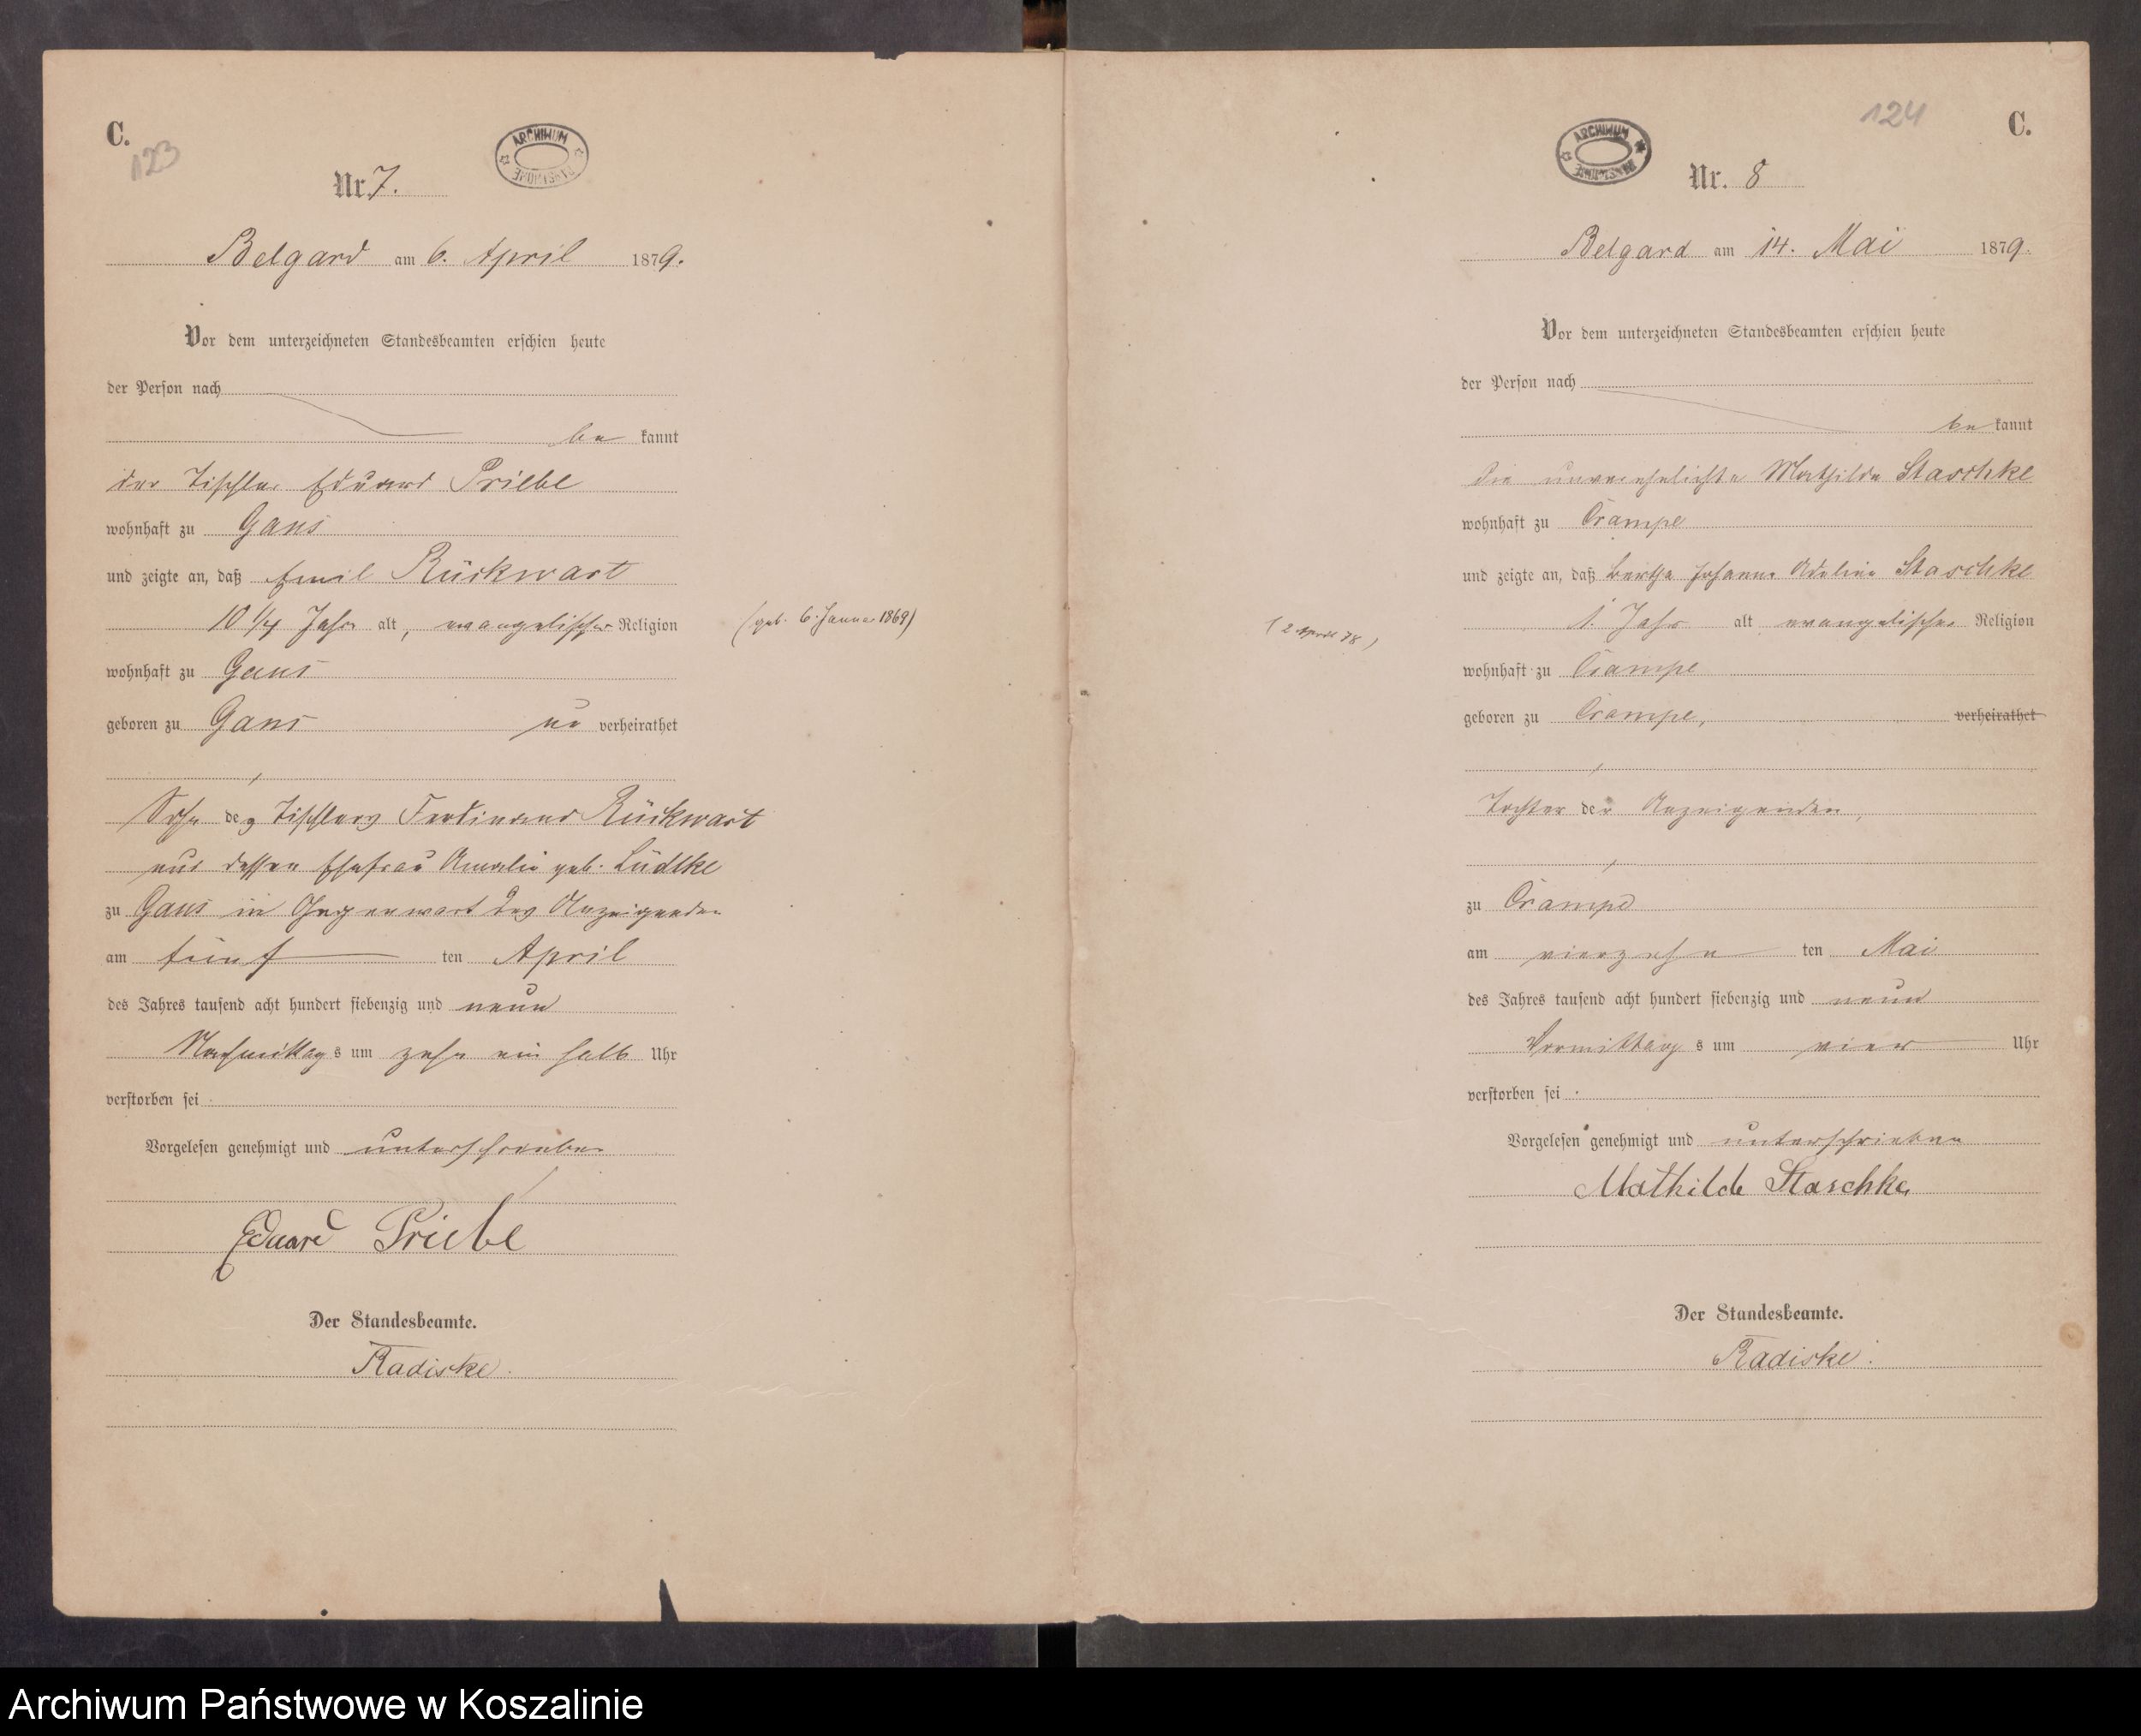 C.
123
ARCHIWUM
PAŃSTWOWE
Nr. 7.
Belgard am 6. April 1879.
Vor dem unterzeichneten Standesbeamten erschien heute
der Person nach
be kannt
der Tischler Eduard Priebe
wohnhaft zu Gans
und zeigte an, daß Emil Rückwart
10 1/4 Jahr alt, evangelischer Religion
(geb. 6. Januar 1869)
wohnhaft zu Gans
geboren zu Gans un verheirathet
Sohn des Tischlers Ferdinand Rückwart
und dessen Ehefrau Amalie geb. Lüdtke
zu Gans in Gegenwart des Anzeigenden
am fünf ten April
des Jahres tausend acht hundert siebenzig und neun
Nachmittags um zehn ein halb Uhr
verstorben sei
Vorgelesen genehmigt und unterschrieben
Eduard Priebe
Der Standesbeamte.
Radiske.
124
C.
ARCHIWUM
PAŃSTWOWE
Nr. 8
Belgard am 14. Mai 1879.
Vor dem unterzeichneten Standesbeamten erschien heute
der Person nach
be kannt
die unverehelichte Mathilde Staschke
wohnhaft zu Crampe
und zeigte an, daß Bertha Johanne Adeline Staschke
1 Jahr alt evangelischer Religion
(2 April 78)
wohnhaft zu Crampe
geboren zu Crampe, verheirathet
Tochter der Anzeigenden,
zu Crampe
am vierzehn ten Mai
des Jahres tausend acht hundert siebenzig und neun
Vormittags um vier Uhr
verstorben sei
Vorgelesen genehmigt und unterschrieben
Mathilde Staschke
Der Standesbeamte.
Radiske.
Archiwum Państwowe w Koszalinie